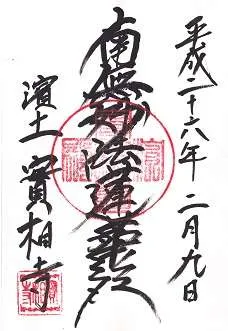 平成二十六年 二月九日
南無妙法蓮華経
濱土 實相寺